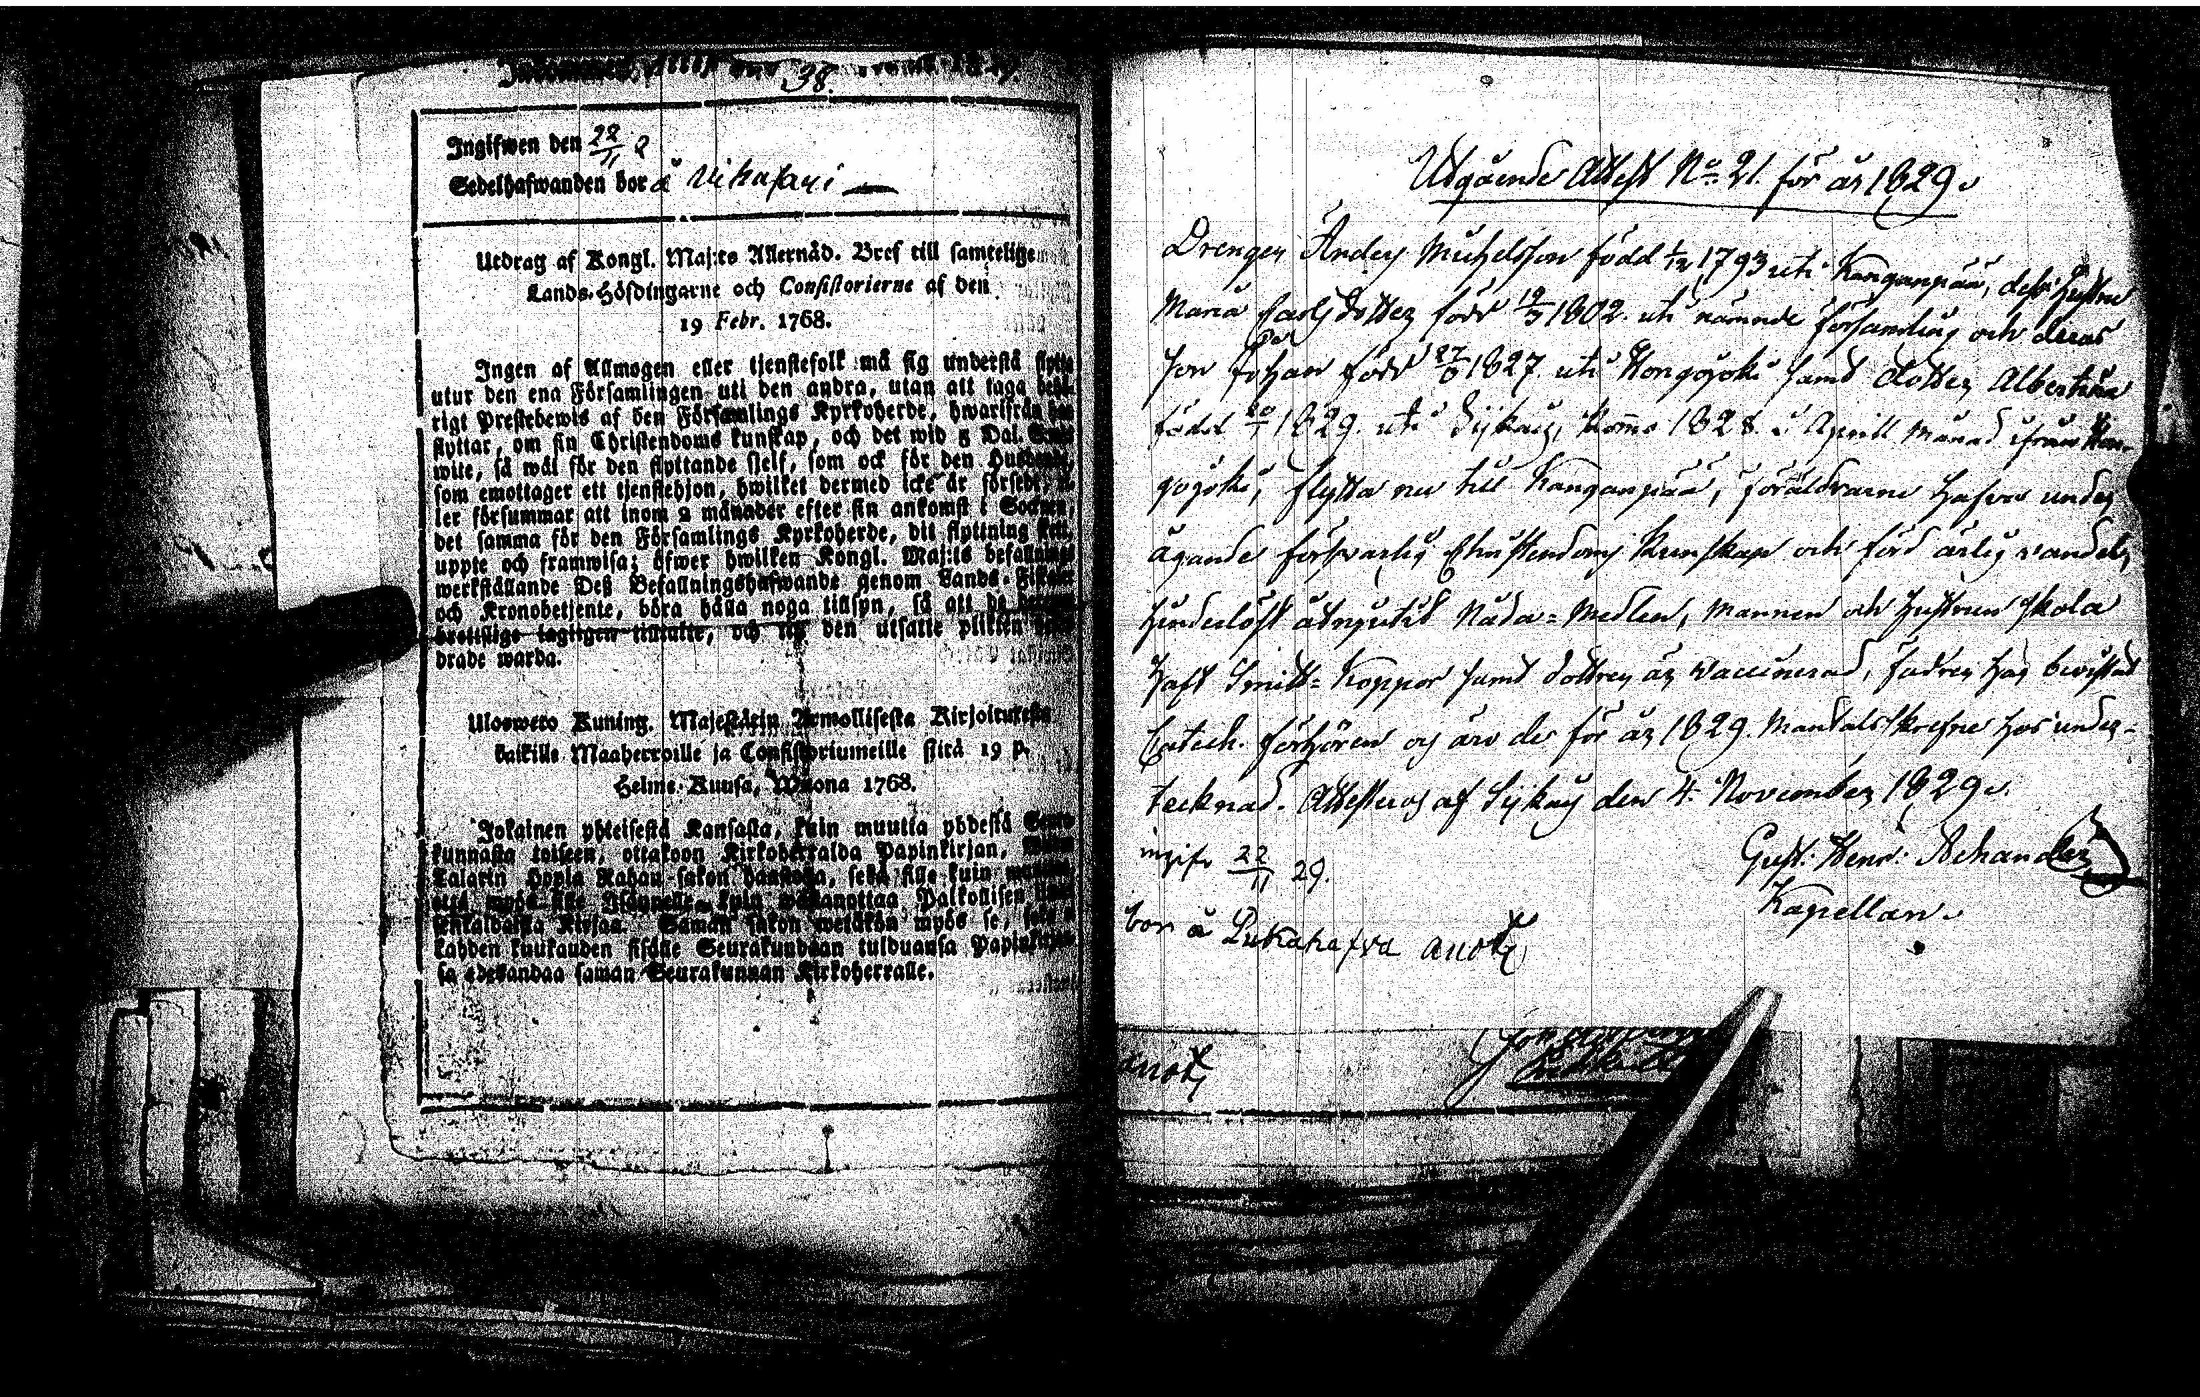 38.
Ingifwen den 22/11
Sedelhafwanden bor å Vihasari
Utdrag af Kongl. Maj:ts Allernåd. Bref till samtelige
Lands-Höfdingarne och Consistorierne af den
19 Febr. 1768.
Ingen af Allmogen eller tjenstefolk må sig understå flytta
utur den ena Församlingen uti den andra, utan att taga behö-
rigt Prestebewis af den Församlings Kyrkoherde, hwarifrån han
flyttar, om sin Christendoms kunskap, och det wid 5 Dal. S:mts
wite, så wäl för den flyttande sjelf, som ock för den Husbonde,
som emottager ett tjenstehjon, hwilket dermed icke är försedt, el-
ler försummar att inom 2 månader efter sin ankomst i Socknen,
det samma för den Församlings Kyrkoherde, dit flyttning sker,
uppte och framwisa; öfwer hwilken Kongl. Maj:ts befallnings
werkställande Deß Befallningshafwande genom Lands-Fiskaler
och Kronobetjente, böra hålla noga tillsyn, så att de
och den utsatte plikten
drade warda.
Uloswето Kuning. Majestätin Armollisesta Kirjoituksesta
kaikille Maaherroille ja Consistoriumeille siitä 19 p.
Helme-Kuusa, Wuona 1768.
Jokainen yhteisestä Kansasta, kuin muutta yhdestä Seura-
kunnasta toiseen, ottakoon Kirkoherralda Papinkirjan,
Talarin Hopia Rahan sakon haastolla, sekä sille kuin
että myös sille Isännelle, kuin wastanottaa Palkollisen ilman
senkaldaista Kirjaa. Saman sakon wetäkön myös se, joka ei
kahden kuukauden sisälle Seurakundaan tulduansa Papinkirjaan-
sa edeskandaa saman Seurakunnan Kirkoherralle.
Utgående Attest No 21. för år 1829.
Drengen Anders Michelsson född 1/12 1793 uti Kanganpää, dess hustru
Maria Carlsdotter född 19/3 1802. uti nämnde församling och deras
son Johan född 27/6 1827. uti Hongojoki samt dotter Albertina
född 20/1 1829. uti Sijkais, komne 1828. i Aprill månad ifrån Hon-
gojoki, flytta nu till Kanganpää, föräldrarne hafva under
ägande försvarlig Christendoms kunskap och förd ärlig vandel,
hinderlöst åtnjutit Nåda-Medlen, mannen och hustrun skola
haft Smitt-Koppor samt dottren är vaccinerad, fadren har bevistad
Catech. förhören och äro de för år 1829 Mantalsskrefne hos under-
tecknad. Attesteras af Sijkais den 4. November 1829.
Gust: Henr: Achander
Kapellan.
ingifv 22/11 29.
bor å Pukaha anot
anot